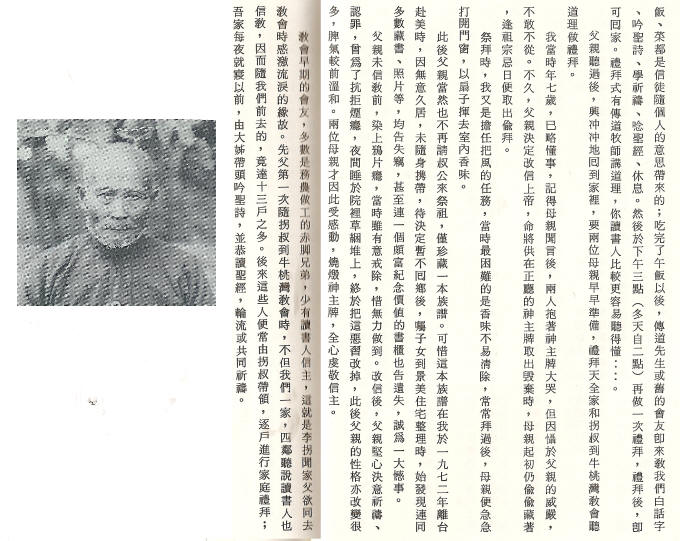 飯、菜都是信徒隨個人的意思帶來的；吃完了午飯以後，傳道先生或舊的會友卽來教我們白話字
、吟聖詩、學祈禱、唸聖經、休息。然後於下午三點（多天自二點）再做一次禮拜，禮拜後，卽
可囘家。禮拜式有傳道牧師講道理，你讀書人比較更容易聽得懂⋯⋯。
父親聽過後，興冲冲地囘到家裡，要兩位母親早早準備，禮拜天全家和拐叔到牛桃灣教會聽
道理做禮拜。
我當時年七歲，已略懂事，記得母親聞言後，兩人抱著神主牌大哭，但因懾於父親的威嚴，
不敢不從。不久，父親決定改信上帝，命將供在正廳的神主牌取出毀棄時，母親起初仍偷偷藏著
，逢祖宗忌日便取出偷拜。
祭拜時，我又是擔任把風的任務，當時最困難的是香味不易清除，常常拜過後，母親便急急
打開門窗，以扇子揮去室內香味。
此後父親當然也不再請叔公來祭祖，僅珍藏一本族譜。可惜這本族譜在我於一九七二年離台
赴美時，因無意久居，未隨身携帶，待決定暫不囘鄉後，囑子女到景美住宅整理時，始發現連同
多數藏書、照片等，均告失竊，甚至連一個頗富紀念價值的書櫃也告遺失，誠爲一大憾事。
父親未信教前，染上鴉片癮，當時雖有意戒除，惜無力做到。改信後，父親堅心決意祈禱、
認罪，曾爲了抗拒煙癮，夜間睡於院裡草綑堆上，終於把這惡習改掉，此後父親的性格亦改變很
多，脾氣較前溫和。兩位母親才因此受感動，燒燬神主牌，全心虔敬信主。
教會早期的會友，多數是務農做工的赤脚兄弟，少有讀書人信主，這就是李拐聞家父欲同去
教會時感激流淚的緣故。先父第一次隨拐叔到牛桃灣教會時，不但我們一家，四鄰聽說讀書人也
信教，因而隨我們前去的，竟達十三戶之多。後來這些人便常由拐叔帶領，逐戶進行家庭禮拜；
吾家每夜就寢以前，由大姊帶頭吟聖詩，並恭讀聖經，輪流或共同祈禱。